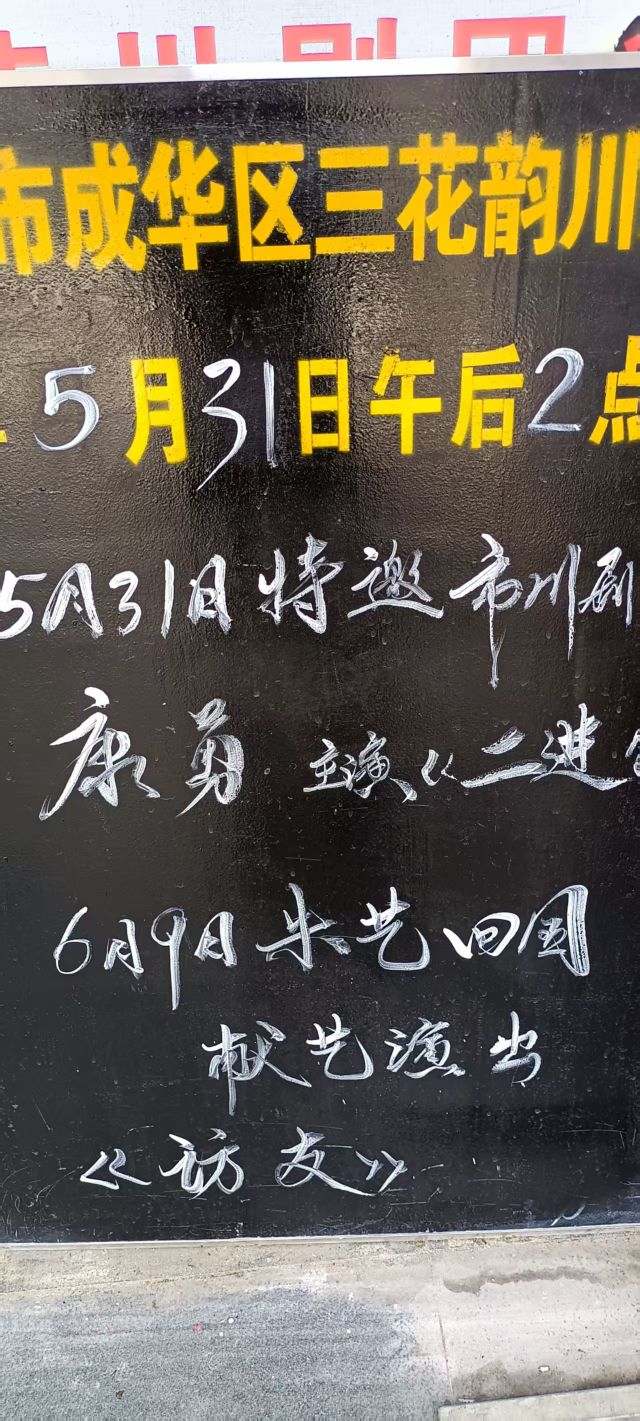 川剧团
市成华区三花韵川
5月31日午后2点
5月31日特邀市川剧
康勇 主演《二进
6月9日 朱艺回国
献艺演出
《访友》